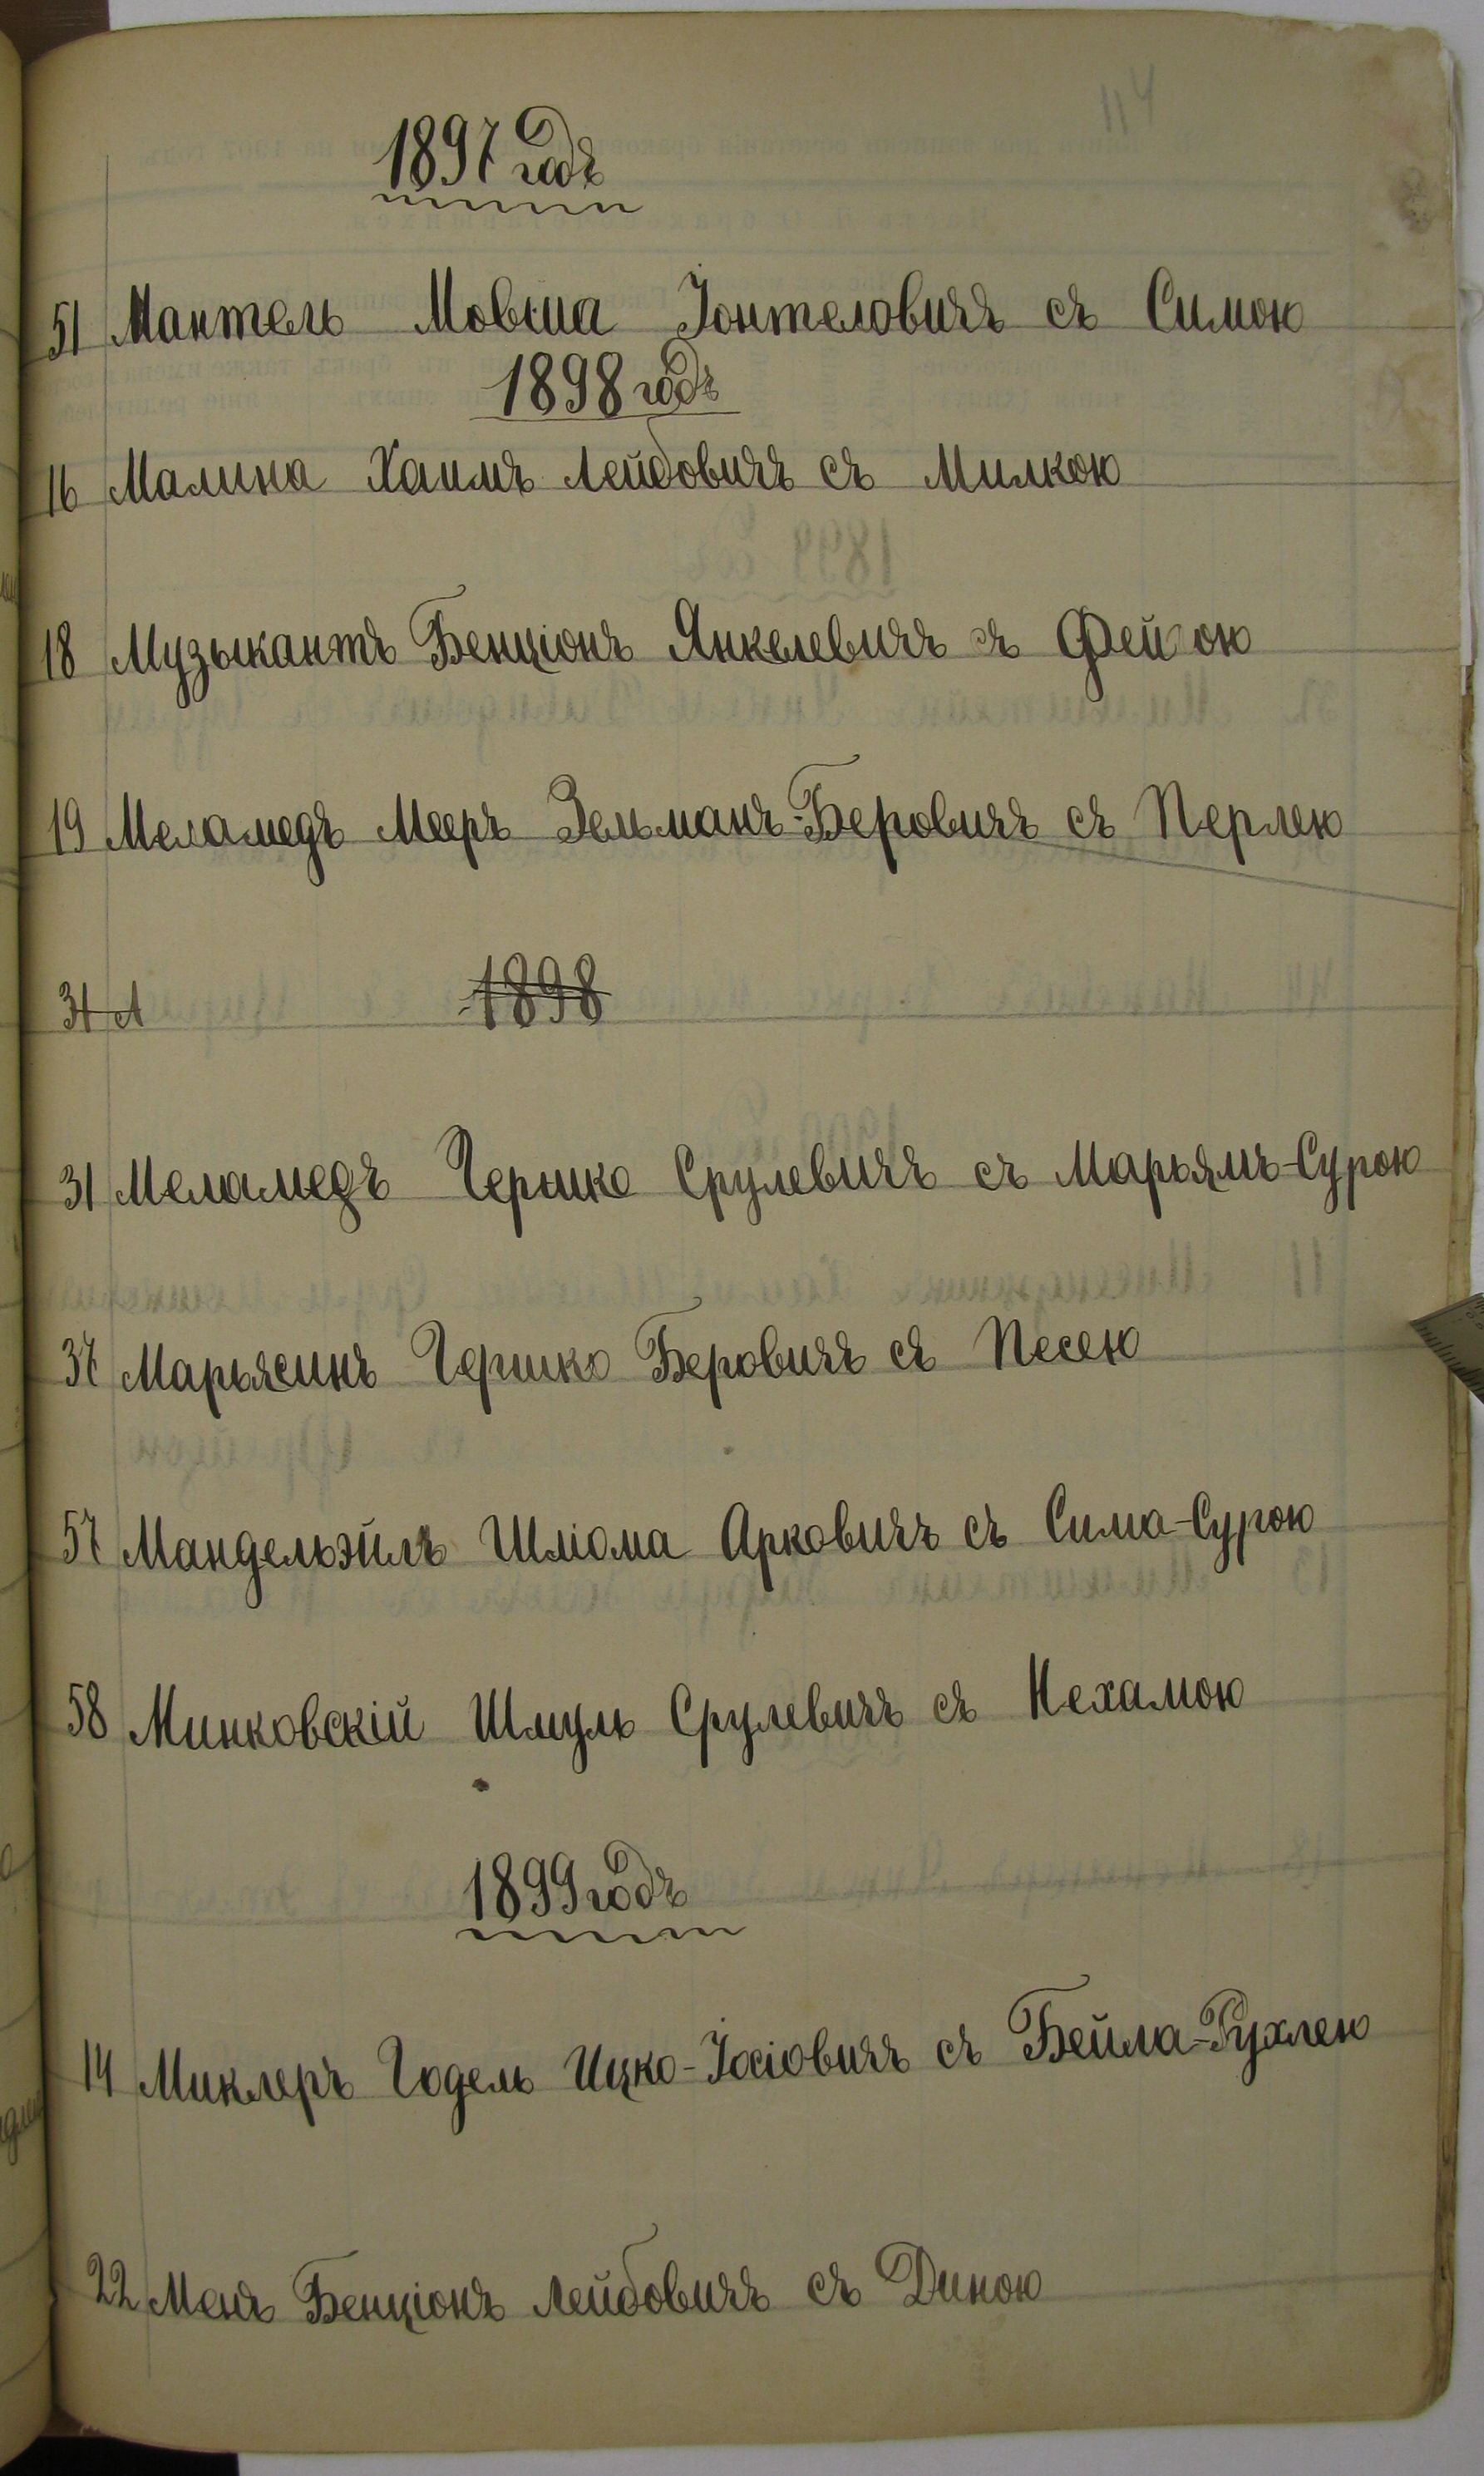 114
1897 годъ
51 Мантель Мовша Іонтеловичъ съ Симою
1898 годъ
16 Малина Хаимъ Лейбовичъ съ Милкою
18 Музыкантъ Бенціонъ Янкелевичъ съ Фейгою
19 Меламедъ Мееръ Зельманъ-Беровичъ съ Перлею
31 А 1898
31 Меламедъ Гершко Срулевичъ съ Марьямъ-Сурою
37 Марьясинъ Гершко Беровичъ съ Песею
57 Мандельэйлъ Шліома Арковичъ съ Сима-Сурою
58 Минковскій Шмуль Срулевичъ съ Нехамою
1899 годъ
14 Миклеръ Годель Ицко-Іосіовичъ съ Бейла-Рухлею
22 Менъ Бенціонъ Лейбовичъ съ Диною